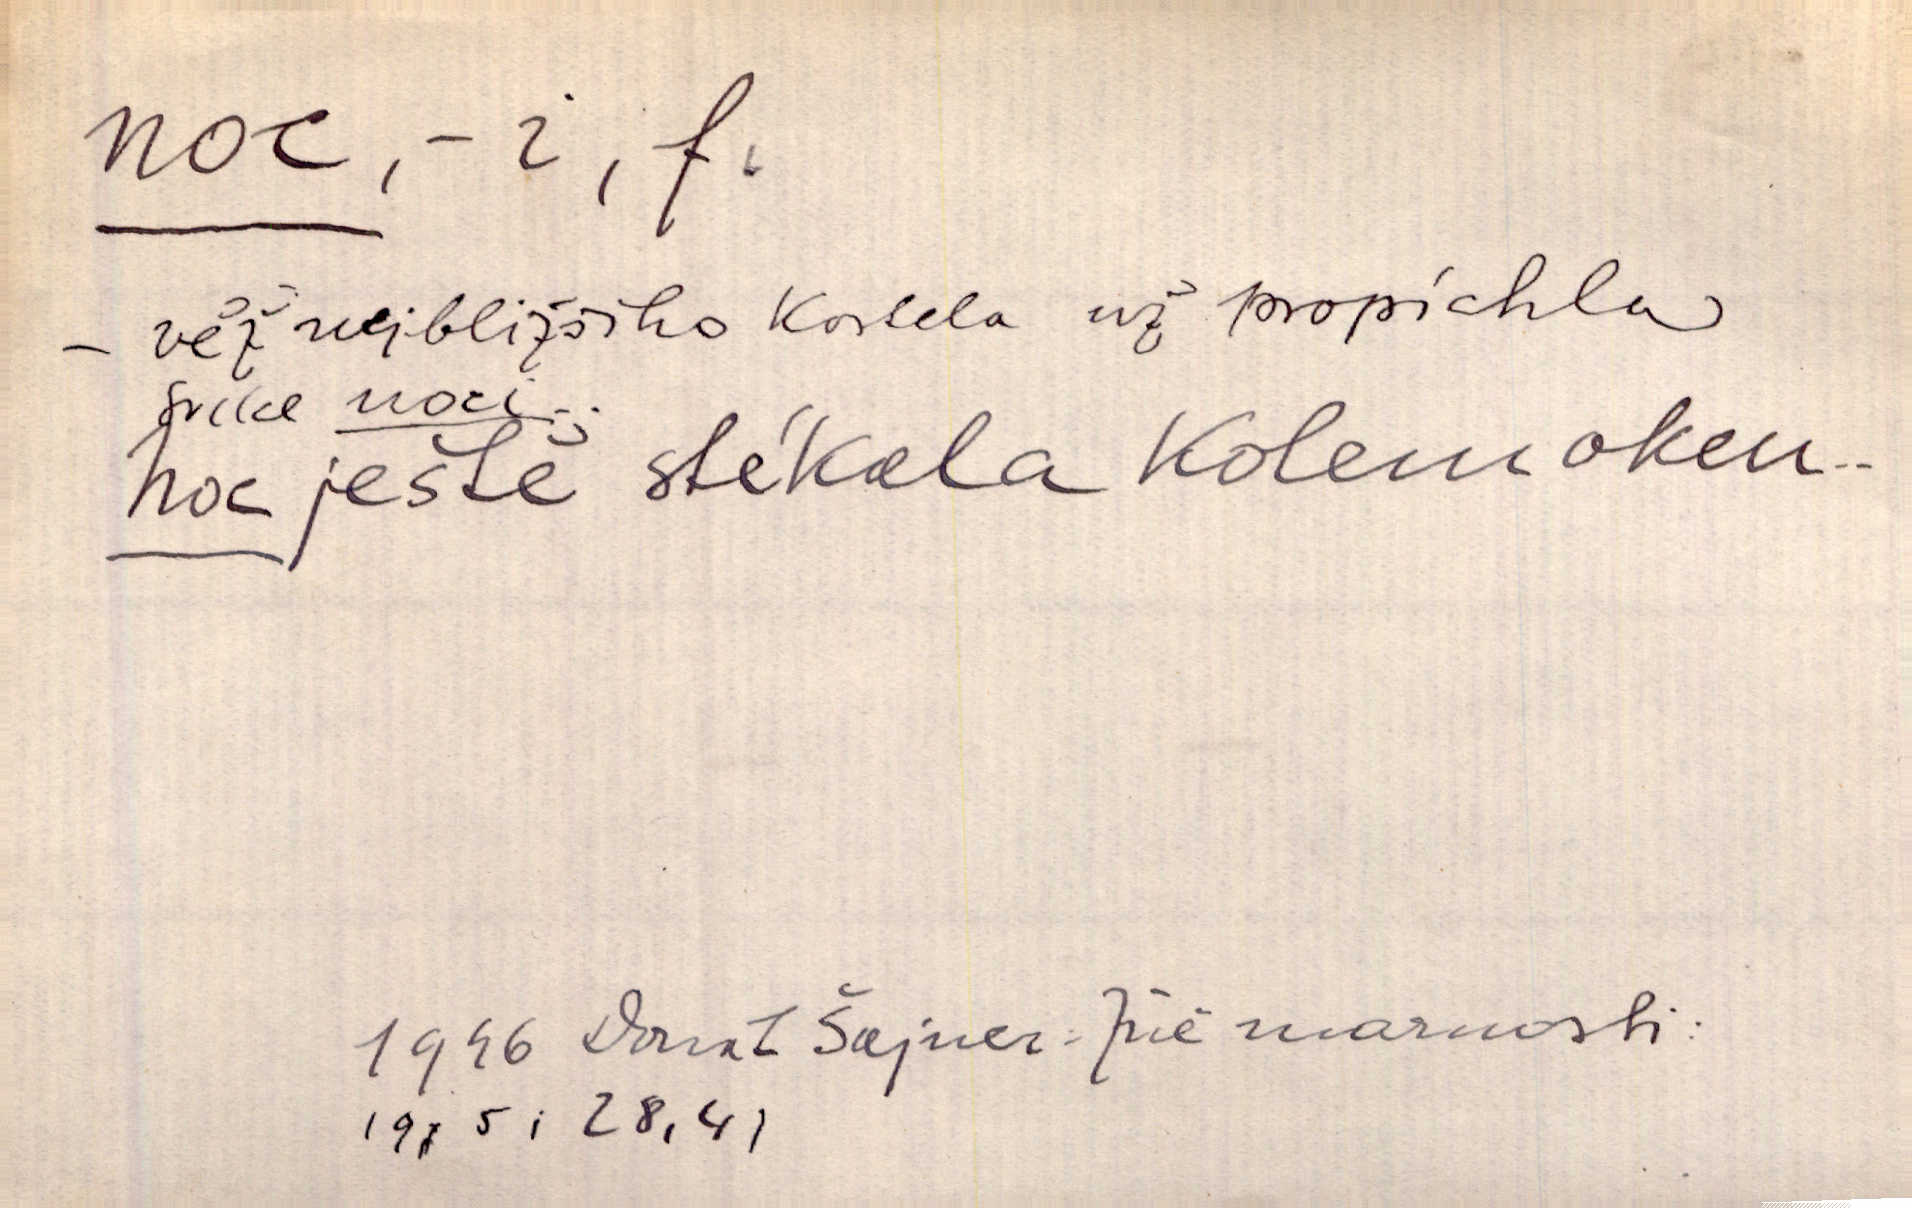 noc, -i, f.
- věž nejbližšího kostela už propíchla
srdce noci..
noc ještě stékala kolem oken..
1946 Donat Šajner: marnosti:
1975; 28, 41